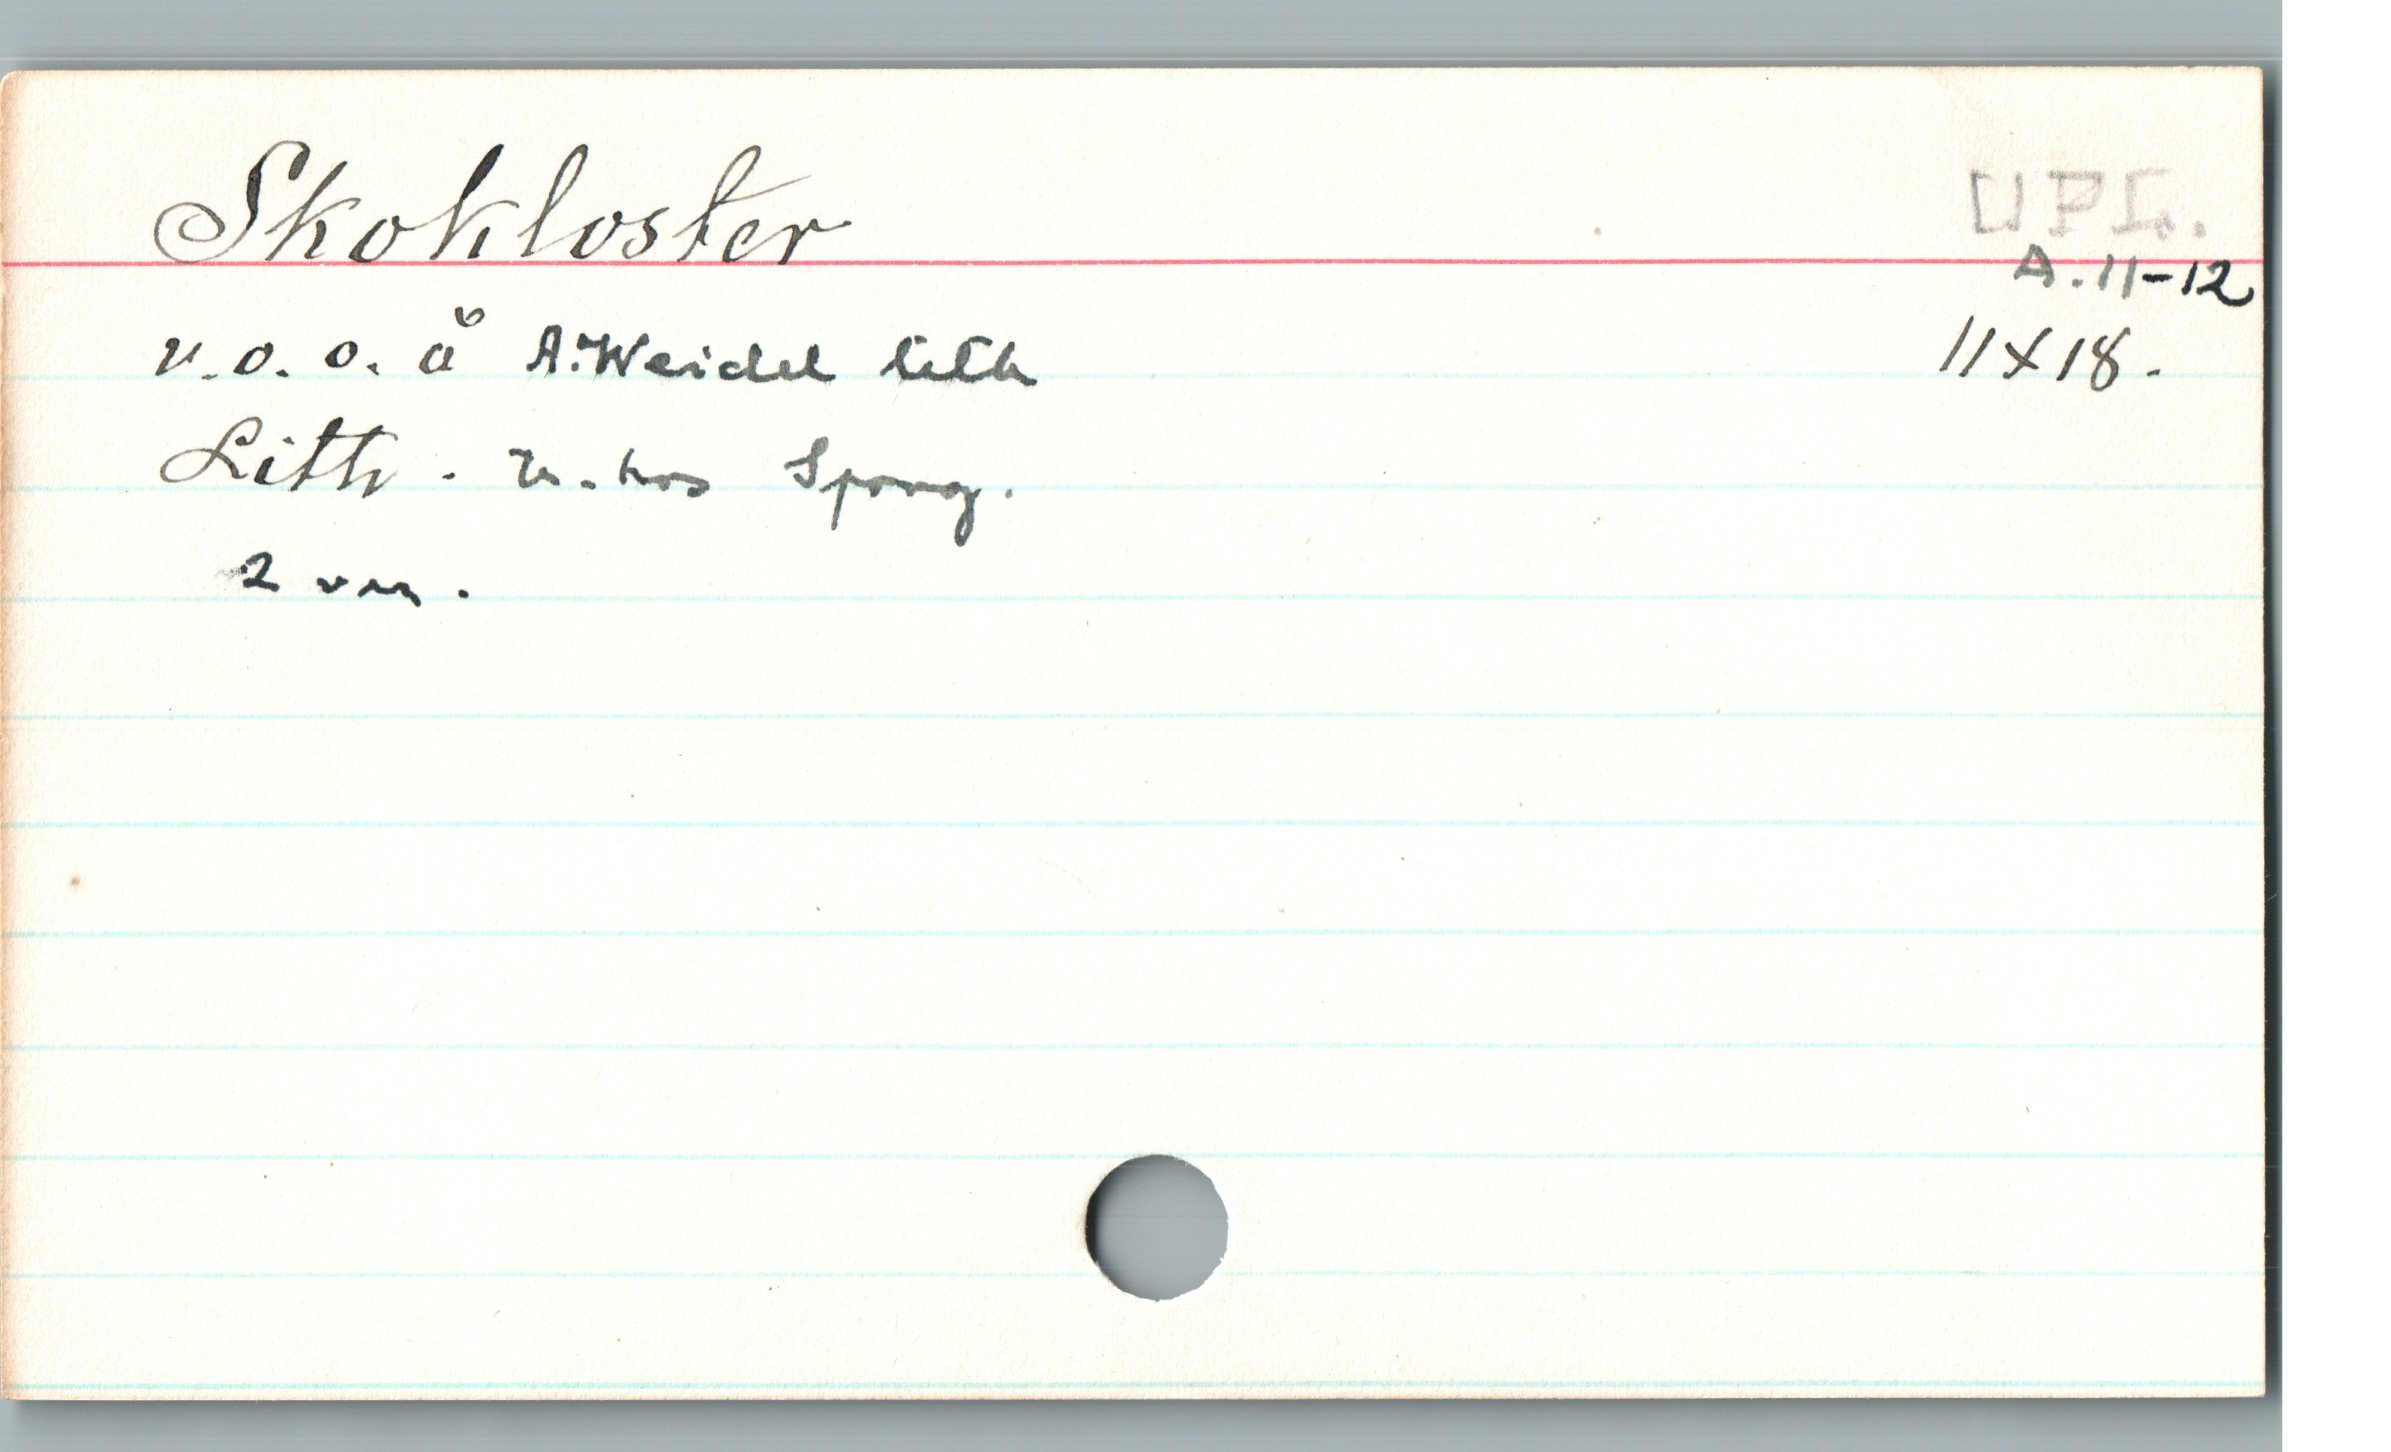 Skokloster
UPL.
A.11-12
u.o.o.å A.Weidel lith
11x18.
Lith. u.hos Spong.
2 var.